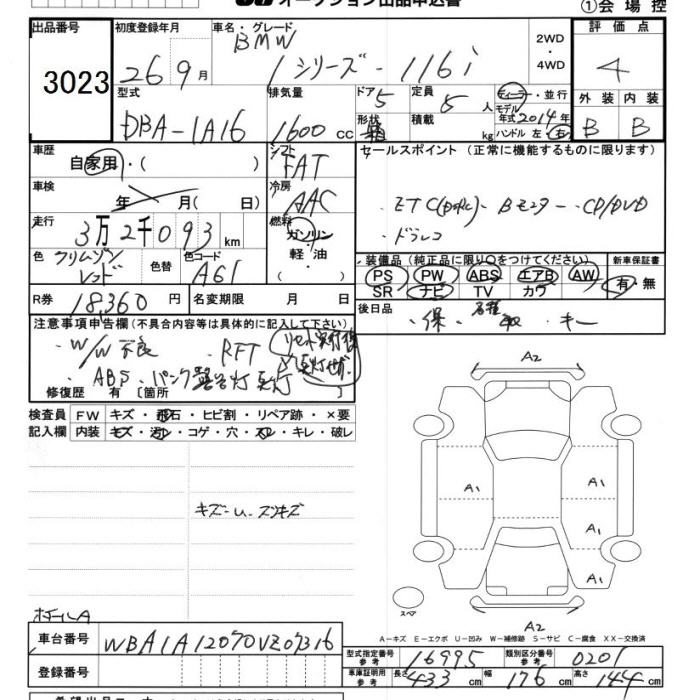 オークション出品申込書
①会場控
出品番号 初度登録年月 車名・グレード 評価点
3023 26 9月 BMW 1シリーズ-116i 2WD・4WD 4
型式 排気量 ドア 5 定員 5 人 ディーラー・並行 モデル 外装 内装
DBA-1A16 1600 CC 形状 積載 kg 年式 2014年 ハンドル 左 右 B B
車歴 自家用・( ) シフト FAT セールスポイント (正常に機能するものに限ります)
車検 年 月( 日) 冷房 AAC ・ETC ・Bモニター ・CD/DVD
走行 3万2千093km 燃料 ガソリン ・ドラレコ
色 クリムゾンレッド 色替 色コード A61 軽油・( ) 装備品 (純正品に限り○をつけてください) 新車保証書
PS PW ABS エアB AW 有・無
SR ナビ TV カワ
R券 18,360円 名変期限 月 日 後日品 ・保・各種取・キー
注意事項申告欄 (不具合内容等は具体的に記入して下さい)
・W/W不良 ・RFT
・ABS、パンク警告灯点灯
修復歴 有 [箇所 ]
A2
検査員 FW キズ・飛石・ヒビ割・リペア跡・×要
記入欄 内装 キズ・汚レ・コゲ・穴・スレ・キレ・破レ
A1 A1
キズ-U-スリキズ
A1
A1
スペア
ホイールA
A2
A－キズ E－エクボ U－凹み W－補修跡 S－サビ C－腐食 XX－交換済
車台番号 WBA1A12070VZ07316
型式指定番号 参考 16995 類別区分番号 参考 0201
登録番号
車庫証明用 参考 長さ 433cm 幅 176cm 高さ 144cm